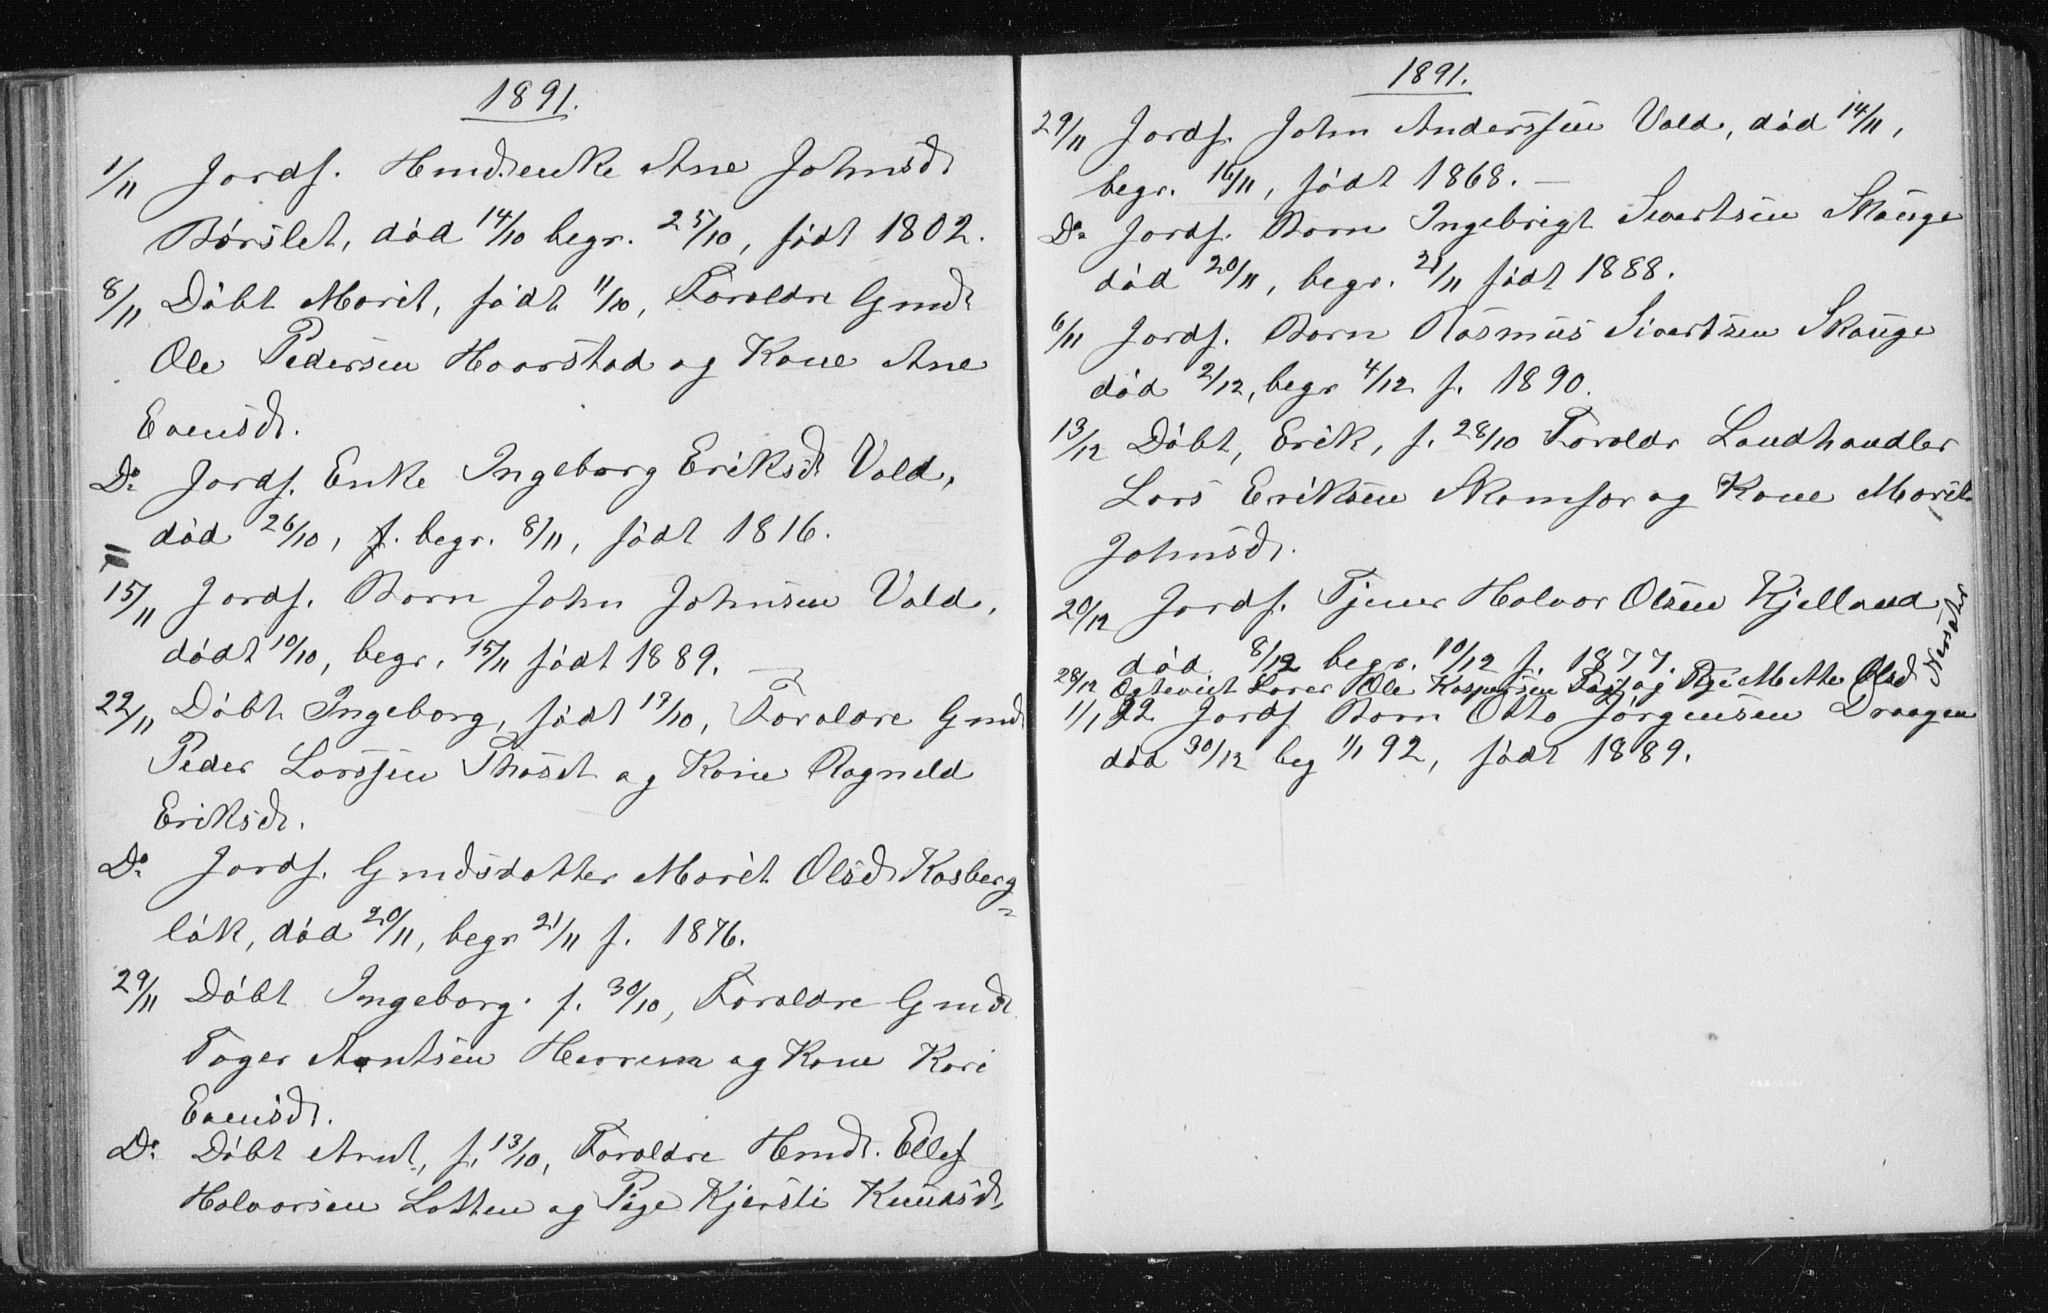 1891.
1/11 Jordf. Hmdsenke Ane Johnsdt
Børslet, død 14/10 begr. 25/10, født 1802.
8/11 Døbt Marit, født 11/10, Foraldre Gmdt
Ole Pedersen Haarstad og Kone Ane
Evensdt.
Do Jordf. Enke Ingeborg Eriksdt Vold,
død 26/10, f. begr. 8/11, født 1816.
15/11 Jordf. Barn John Johnsen Vold,
dødt 10/10, begr. 15/11 født 1889. —
22/11 Døbt Ingeborg, født 19/10, Foraldre Gmdt
Peder Larssen Thoset og Kone Ragneld
Eriksdt.
Do Jordf. Gmdsdatter Marit Olsdt Kasberg-
løk, død 20/11, begr 21/11 f. 1876.
29/11 Døbt Ingeborg. f. 30/10, Foraldre Gmdt
Tager Arntsen Harrem og Kone Kari
Evensdt.
Do Døbt Arnt, f. 13/10, Foraldre Hmdt. Ellef
Halvorsen Lotten og Pige Kjersti Knudsdt.
1891.
29/11 Jordf. John Anderssen Vold, død 14/11,
begr. 16/11, født 1868. —
Do Jordf. Barn Ingebrigt Sivertsen Skauge
død 20/11, begr. 21/11 født 1888.
6/11 Jordf. Barn Rasmus Sivertsen Skauge
død 2/12, begr 4/12 f. 1890.
13/12 Døbt, Erik, f. 28/10 Foraldr Landhandler
Lars Eriksen Skamfer og Kone Marit
Johnsdt.
20/12 Jordf. Tjener Halvor Olsen Kjelland
død 8/12 begr. 10/12 f. 1877.
28/12 Ogteviet Lærer Ole Kaspersen og Pige Mette Olsdt
1/1 92 Jordf Barn Otto Jørgensen Draagen
død 30/12 beg 1/1 92, født 1889.